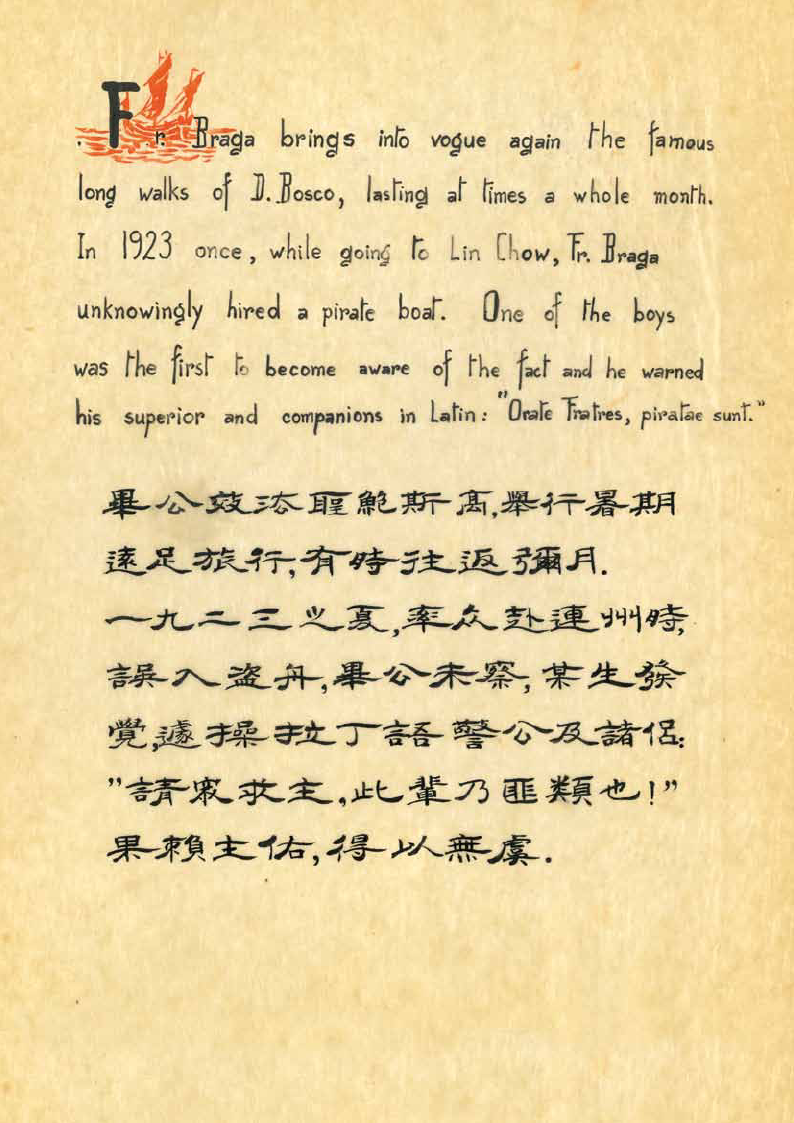 Fr. Braga brings into vogue again the famous
long walks of D. Bosco, lasting at times a whole month.
In 1923 once, while going to Lin Chow, Fr. Braga
unknowingly hired a pirate boat. One of the boys
was the first to become aware of the fact and he warned
his superior and companions in Latin: "Orate Fratres, piratae sunt."
畢公效法聖鮑斯高,舉行暑期
遠足旅行,有時往返彌月.
一九二三之夏,率众赴連州時,
誤入盜舟,畢公未察,某生發
覺,遽操拉丁語警公及諸侶:
"請求主,此輩乃匪類也!"
果賴主佑,得以無虞.